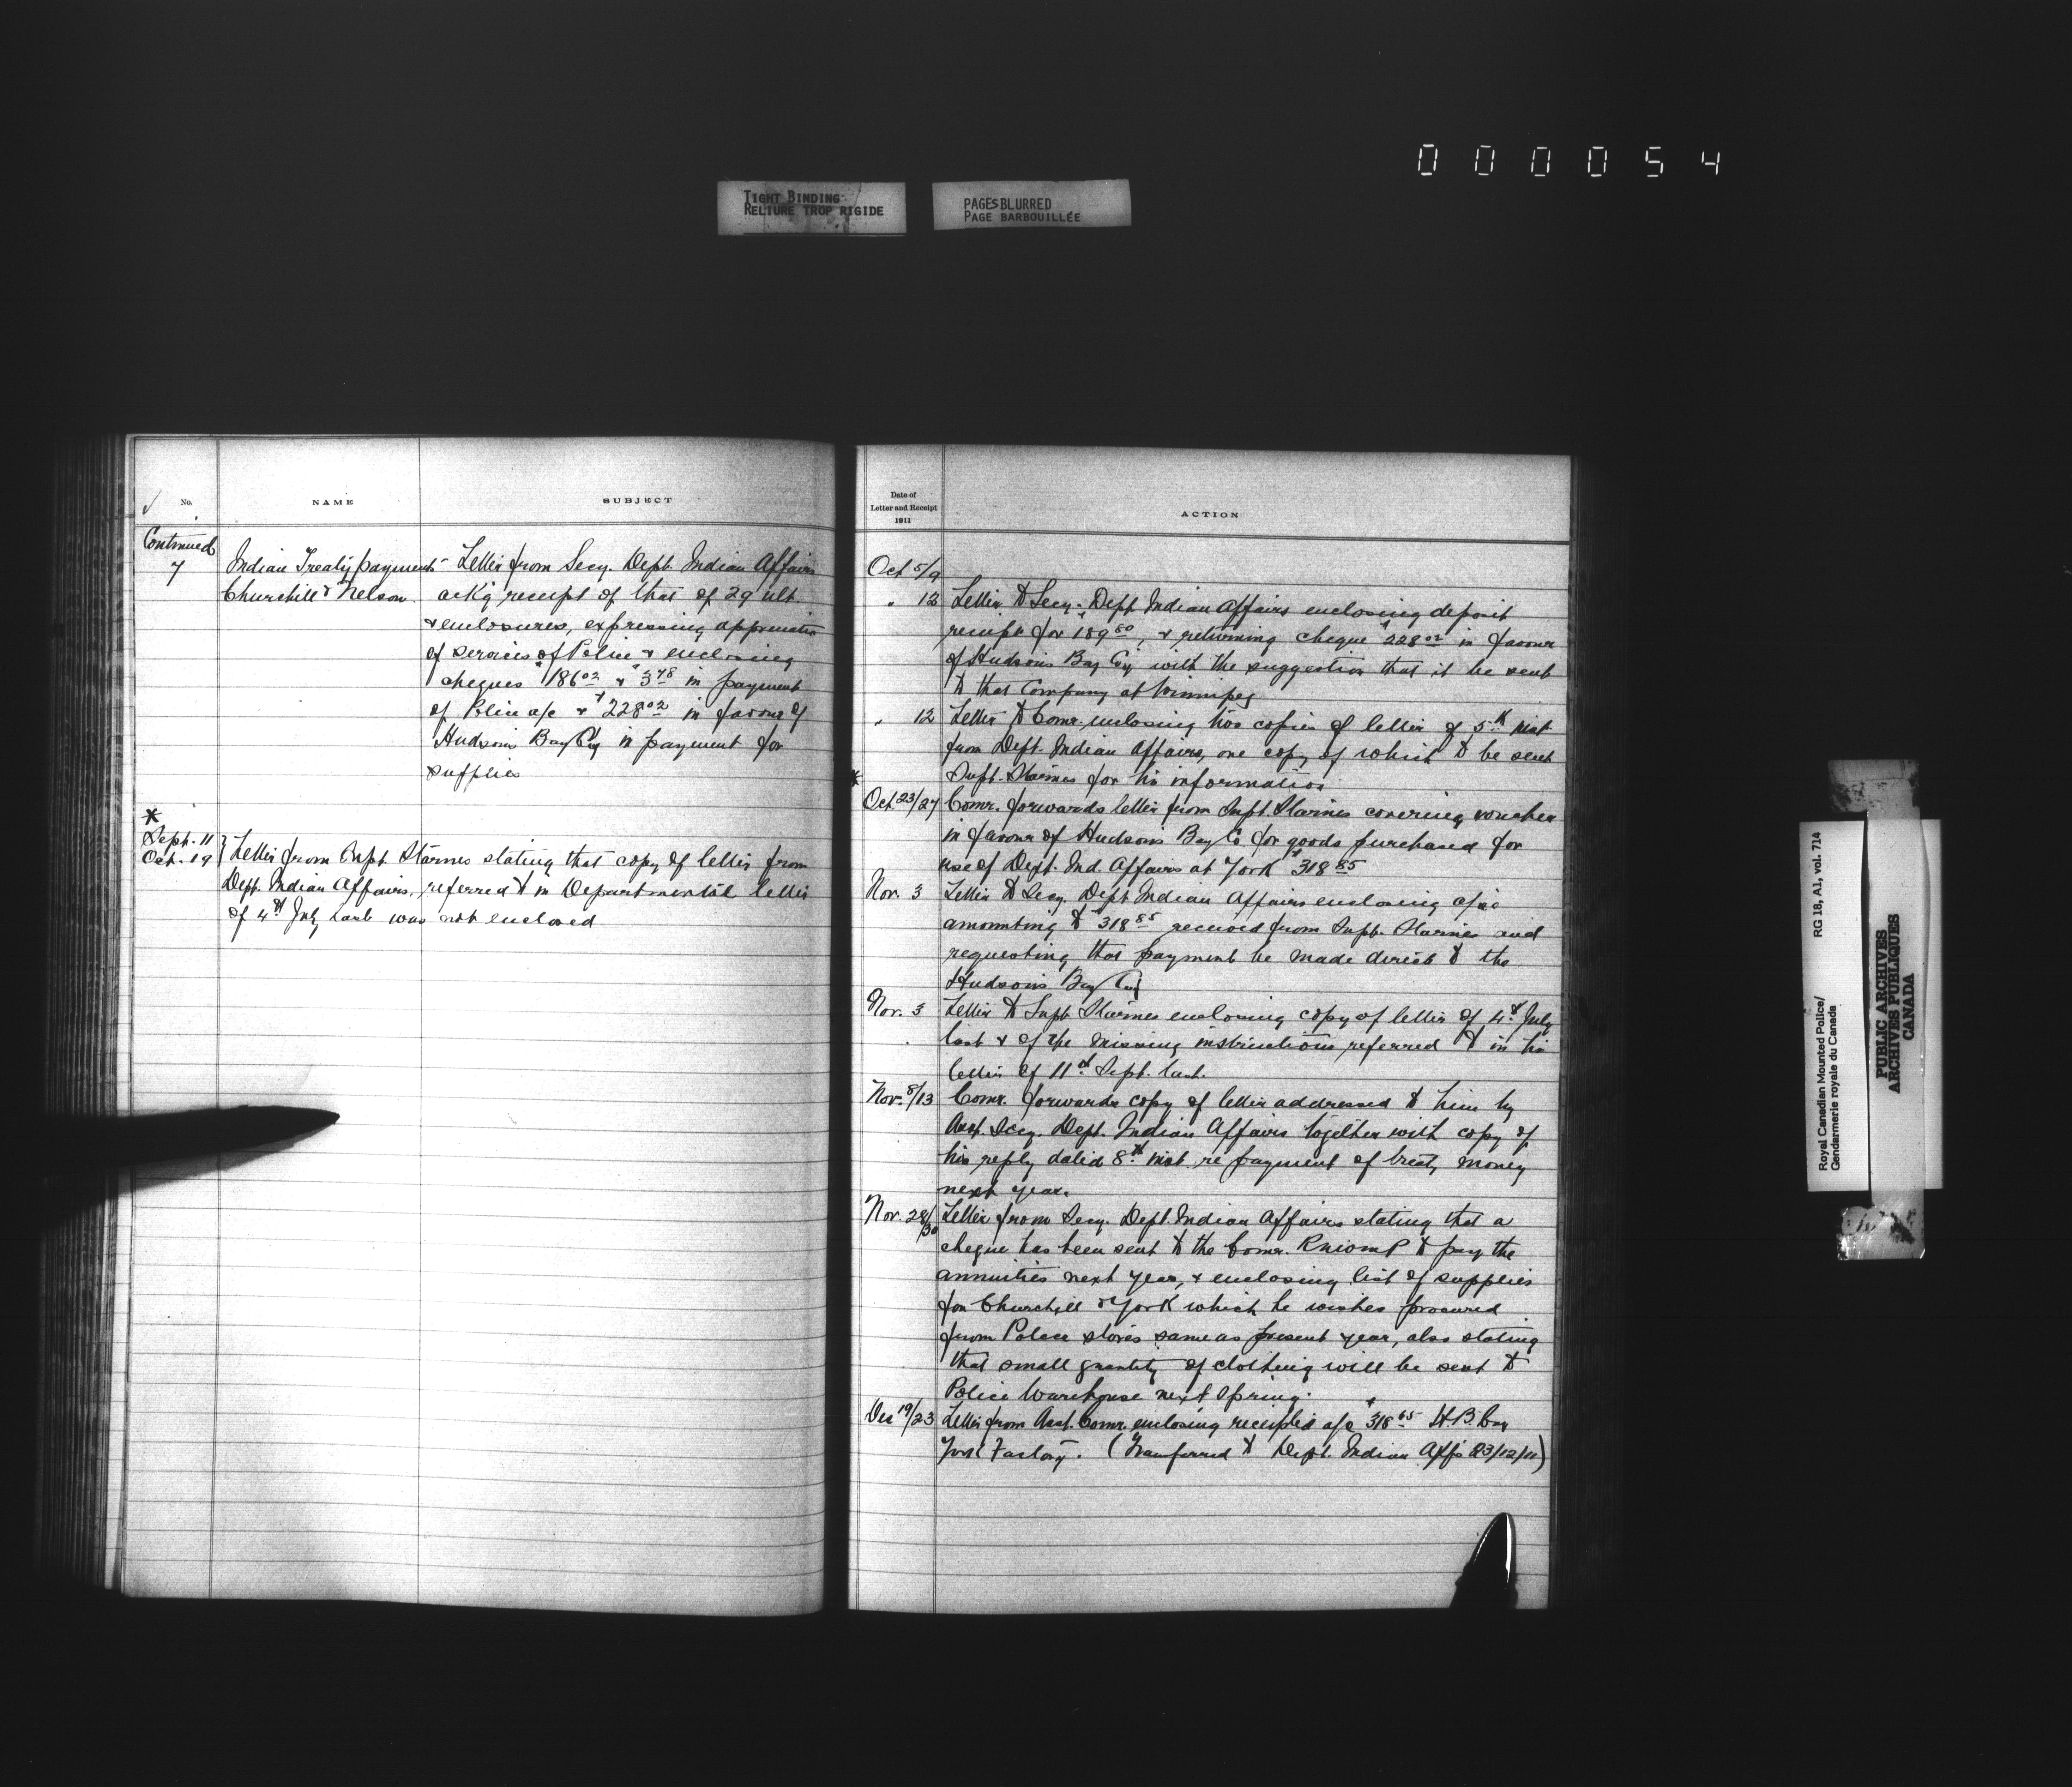 000054
TIGHT BINDING
RELIURE TROP RIGIDE
PAGES BLURRED
PAGE BARBOUILLÉE
No.
NAME
SUBJECT
Continued
7
Indian Treaty payments
Churchill & Nelson
Letter from Secy. Dept. Indian Affairs
ackg receipt of that of 29 ult
& enclosures, expressing appreciation
of services of Police & enclosing
cheques $186.02 & $3.78 in payment
of Police a/c & $228.02 in favour of
Hudson's Bay Coy in payment for
supplies
*
Sept. 11
Oct. 19
Letter from Supt. Starnes stating that copy of letter from
Dept. Indian Affairs, referred to in Departmental letter
of 4th July last was not enclosed
Date of
Letter and Receipt
1911
ACTION
Oct 5/9
" 12 Letter to Secy. Dept Indian Affairs enclosing deposit
receipt for $189.80, & returning cheque $228.02 in favour
of Hudson's Bay Coy with the suggestion that it be sent
to that Company at Winnipeg
" 12 Letter to Comr. enclosing two copies of letter of 5th inst
from Dept. Indian Affairs, one copy of which to be sent
Supt. Starnes for his information
*
Oct 23/27 Comr. forwards letter from Supt Starnes covering voucher
in favour of Hudson's Bay Co for goods purchased for
use of Dept. Ind. Affairs at York $318.85
Nov. 3 Letter to Secy. Dept Indian Affairs enclosing
amounting to $318.85 received from Supt. Starnes and
requesting that payment be made direct to the
Hudson's Bay Coy
Nov. 3 Letter to Supt. Starnes enclosing copy of letter of 4th July
last & of the missing instructions referred to in his
letter of 11th Sept. last.
Nov. 8/13 Comr. forwards copy of letter addressed to him by
Asst. Secy. Dept. Indian Affairs together with copy of
his reply dated 8th inst. re payment of treaty money
next year.
Nov. 28/30 Letter from Secy. Dept. Indian Affairs stating that a
cheque has been sent to the Comr. RNWMP to pay the
annuities next year, & enclosing list of supplies
for Churchill & York which he wishes procured
from Police stores same as present year, also stating
that small quantity of clothing will be sent to
Police Warehouse next spring.
Dec 19/23 Letter from Asst. Comr. enclosing receipted a/c $318.65 H.B. Coy
York Factory. (Transferred to Dept. Indian Affs 23/12/11)
RG 18, A1, vol. 714
Royal Canadian Mounted Police/
Gendarmerie royale du Canada
PUBLIC ARCHIVES
ARCHIVES PUBLIQUES
CANADA